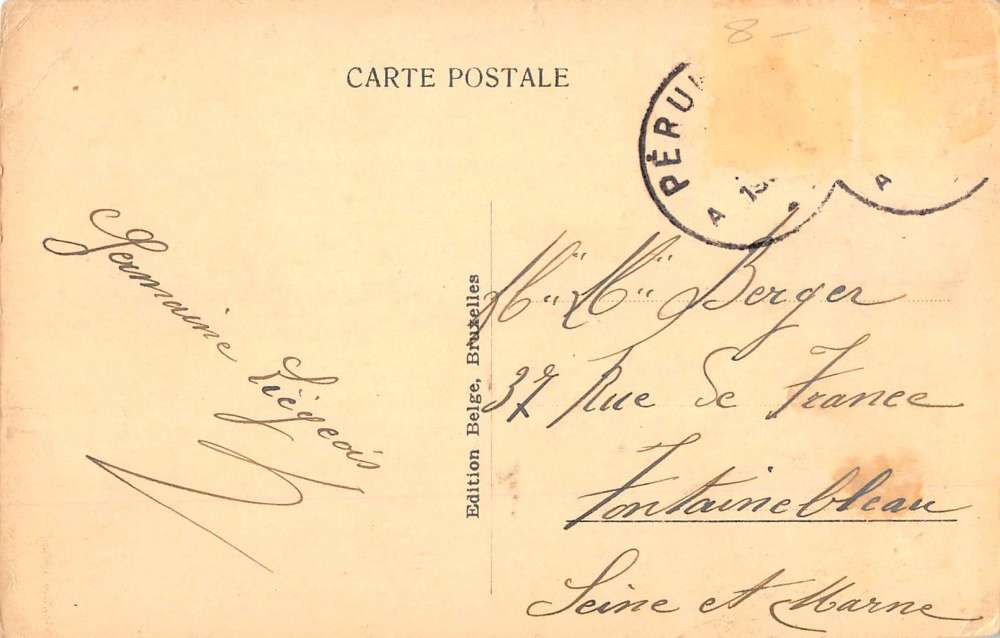 8 -
CARTE POSTALE
PÉRU
A 19
A
Germaine Liégeois
Edition Belge, Bruxelles
Mlle Mlle Berger
37 Rue De France
Fontainebleau
Seine et Marne